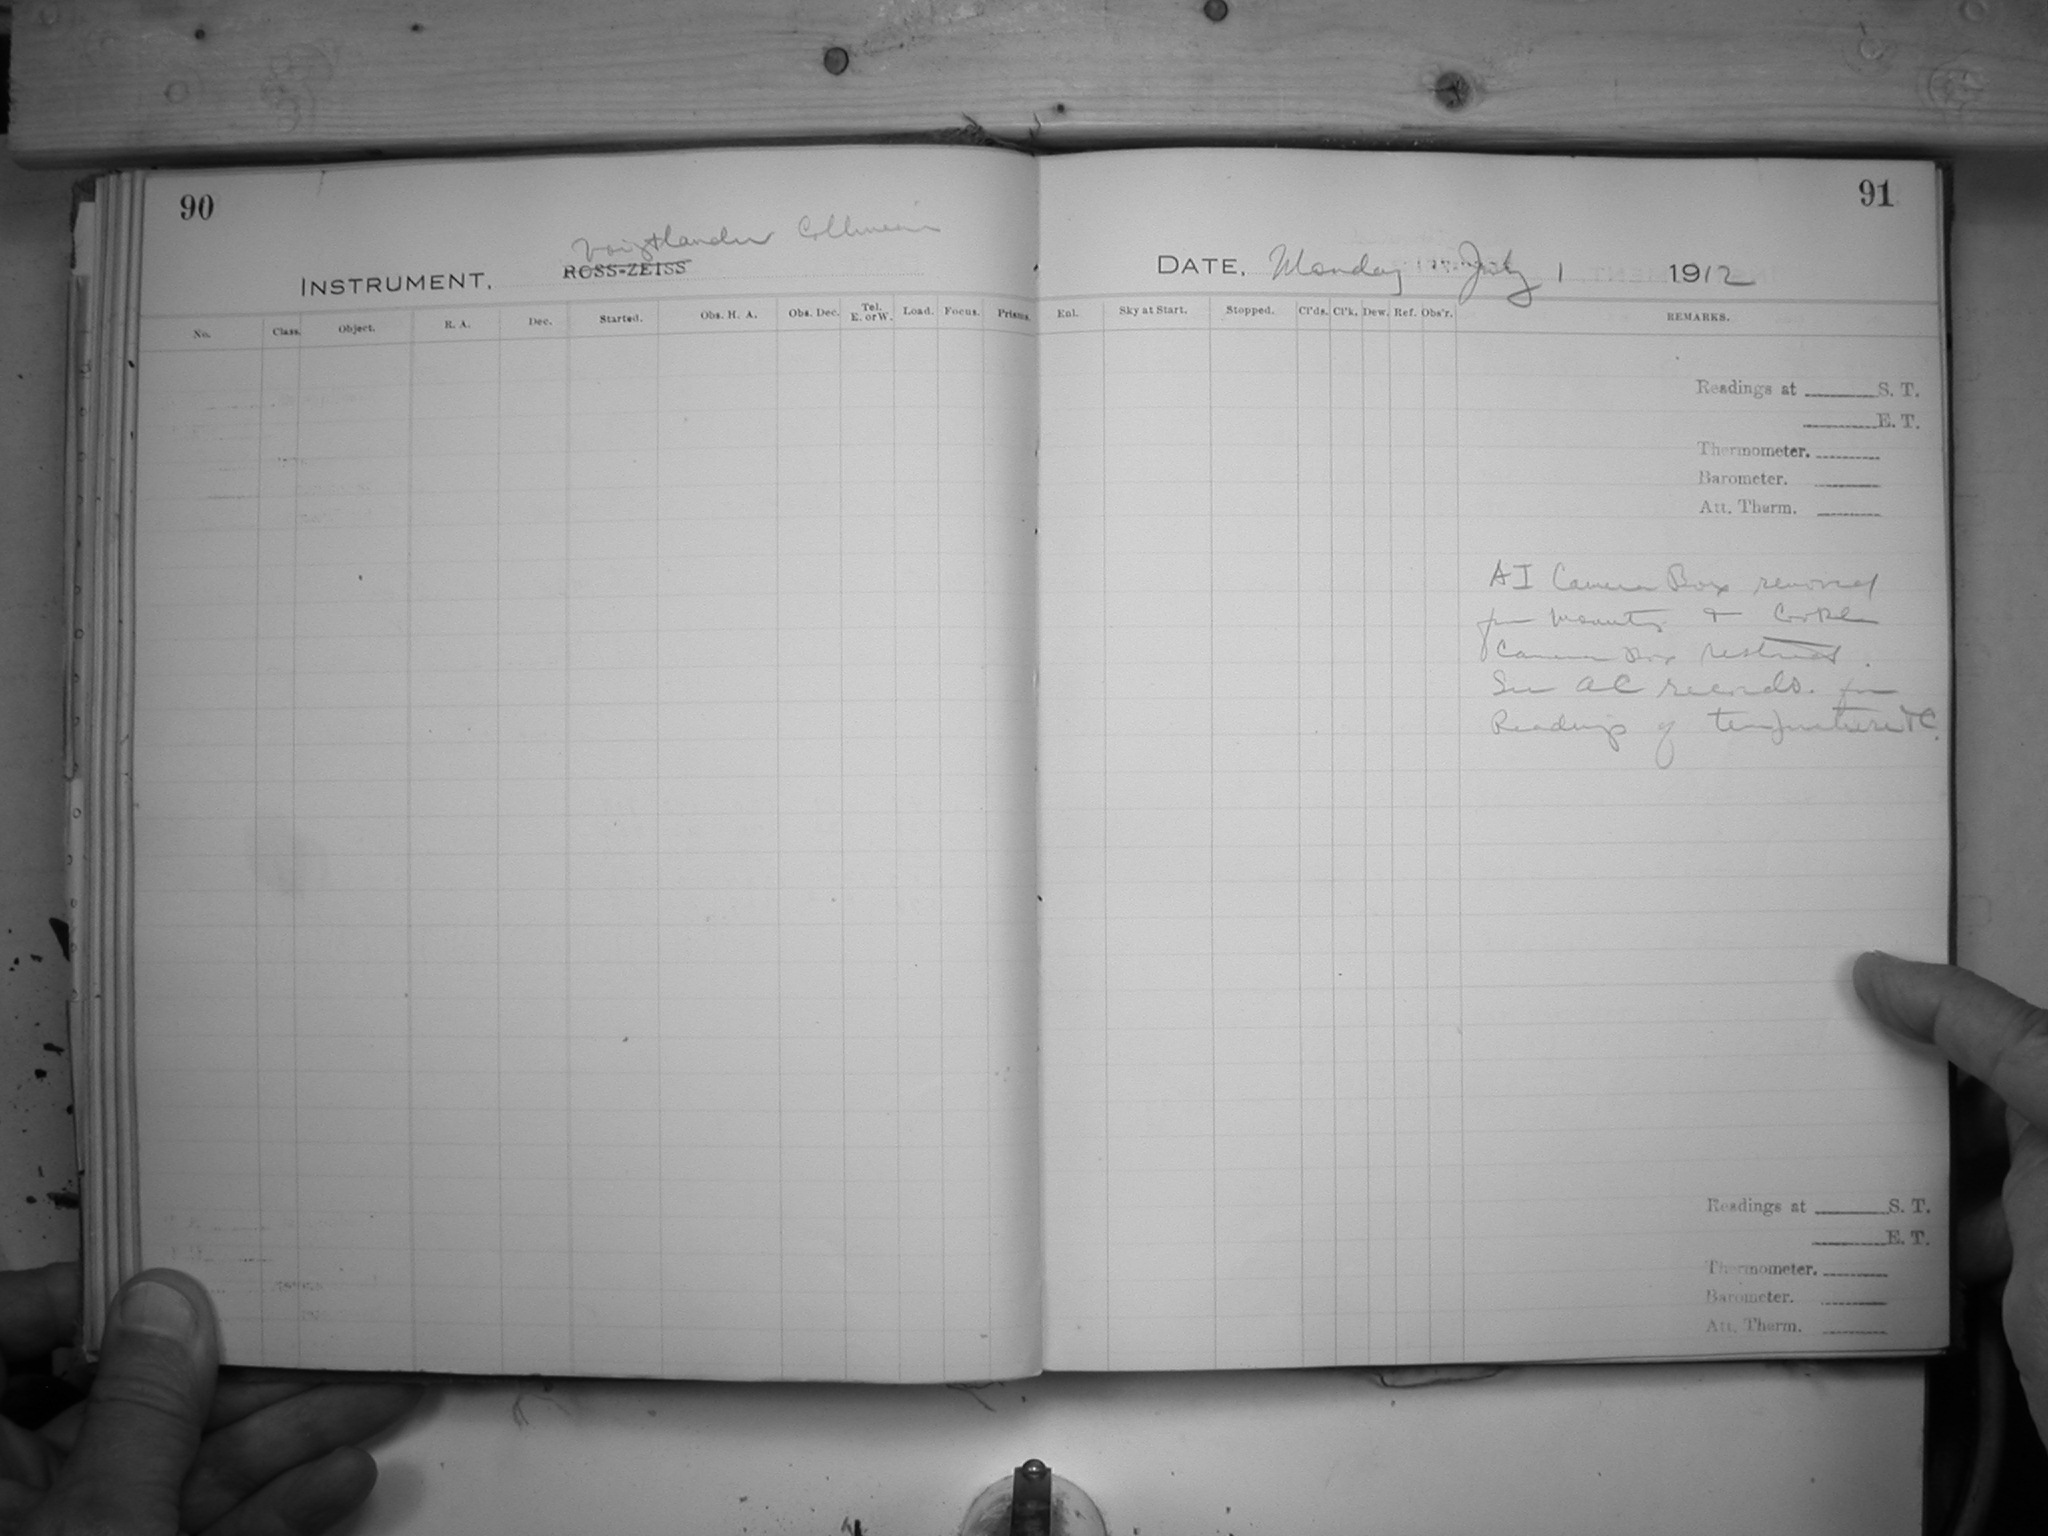 90
Voigtlander Collinear
INSTRUMENT, ROSS-ZEISS
No. Class. Object. R. A. Dec. Started. Obs. H. A. Obs. Dec. Tel. E. or W. Load. Focus. Prisms.
91
DATE, Monday July 1 1912
Enl. Sky at Start. Stopped. Cl'ds. Cl'k. Dew. Ref. Obs'r. REMARKS.
Readings at S. T.
E. T.
Thermometer.
Barometer.
Att. Therm.
AI Camera Box removed
from mounting & Cooke
Camera Box restored.
See AC records. for
Readings of temperature &C.
Readings at S. T.
E. T.
Thermometer.
Barometer.
Att. Therm.